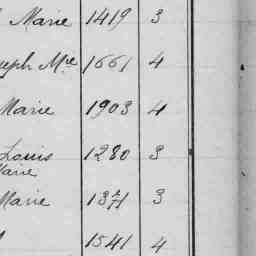 Marie 1419 3
eph Mie 1661 4
Marie 1903 4
Louis 1280 3
Marie
Marie 1371 3
1541 4